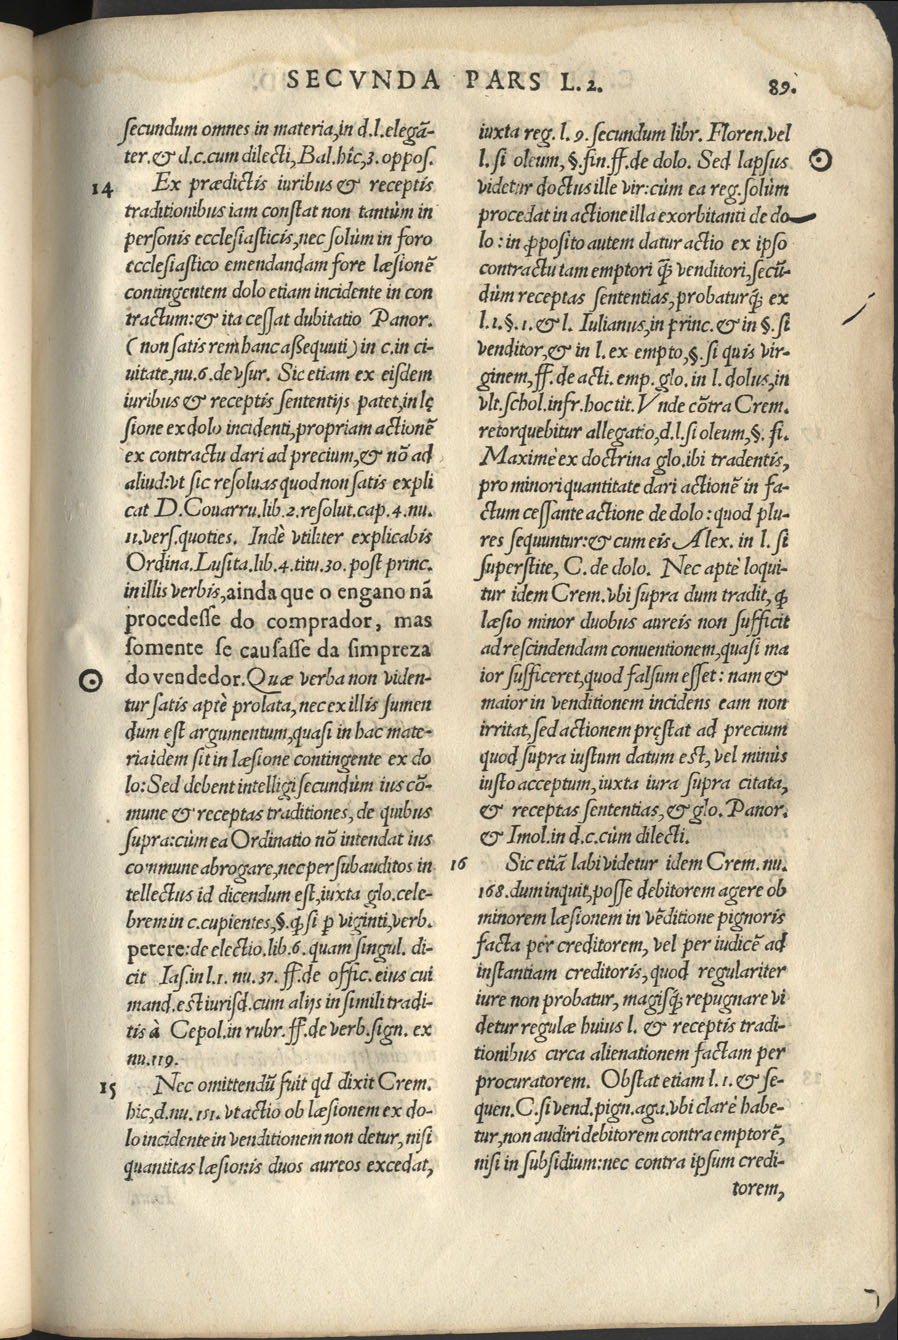 SECVNDA PARS L.2. 89.
secundum omnes in materia, in d.l.elegā-
ter.& d.c.cum dilecti, Bal.hîc, 3. oppos.
14 Ex prædictis iuribus & receptis
traditionibus iam constat non tantùm in
personis ecclesiasticis, nec solùm in foro
ecclesiastico emendandam fore læsionē
contingentem dolo etiam incidente in con
tractum: & ita cessat dubitatio Panor.
(non satis rem hanc aßequuti) in c.in ci-
uitate, nu.6.de vsur. Sic etiam ex eisdem
iuribus & receptis sententijs patet, in lę
sione ex dolo incidenti, propriam actionē
ex contractu dari ad precium, & nō ad
aliud: vt sic resoluas quod non satis expli
cat D. Couarru.lib.2.resolut.cap.4.nu.
11.vers.quoties. Indè vtiliter explicabis
Ordina.Lusita.lib.4.titu.30.post princ.
in illis verbis, ainda que o engano nã
procedesse do comprador, mas
somente se causasse da simpreza
do vendedor. Quæ verba non viden-
tur satis aptè prolata, nec ex illis sumen
dum est argumentum, quasi in hac mate-
ria idem sit in læsione contingente ex do
lo: Sed debent intelligi secundùm ius cō-
mune & receptas traditiones, de quibus
supra: cùm ea Ordinatio nō intendat ius
commune abrogare, nec per subauditos in
tellectus id dicendum est, iuxta glo.cele-
brem in c.cupientes, §.ꝙ si ꝑ viginti, verb.
petere: de electio.lib.6.quam singul. di-
cit Ias.in l.1. nu.37. ff.de offic.eius cui
mand.est iurisd.cum alijs in simili tradi-
tis à Cepol.in rubr.ff.de verb.sign. ex
nu.119.
15 Nec omittendū fuit qd dixit Crem.
hic, d.nu.151. vt actio ob læsionem ex do-
lo incidente in venditionem non detur, nisi
quantitas læsionis duos aureos excedat,
iuxta reg. l. 9. secundum libr. Floren.vel
l. si oleum, §.fin.ff.de dolo. Sed lapsus
videtur doctus ille vir: cùm ea reg.solùm
procedat in actione illa exorbitanti de do
lo: in ꝓposito autem datur actio ex ipso
contractu tam emptori ꝙ̃ venditori, secū-
dùm receptas sententias, probaturꝙ́ ex
l.1.§.1.& l. Iulianus, in princ.& in §.si
venditor, & in l. ex empto, §.si quis vir-
ginem, ff.de acti. emp.glo.in l. dolus, in
vlt.schol.infr.hoc tit. Vnde cōtra Crem.
retorquebitur allegatio, d.l.si oleum, §. fi.
Maximè ex doctrina glo.ibi tradentis,
pro minori quantitate dari actionē in fa-
ctum cessante actione de dolo: quod plu-
res sequuntur: & cum eis Alex. in l. si
superstite, C. de dolo. Nec aptè loqui-
tur idem Crem.vbi supra dum tradit, ꝙ
læsio minor duobus aureis non sufficit
ad rescindendam conuentionem, quasi ma
ior sufficeret, quod falsum esset: nam &
maior in venditionem incidens eam non
irritat, sed actionem pręstat ad precium
quod supra iustum datum est, vel minùs
iusto acceptum, iuxta iura supra citata,
& receptas sententias, & glo. Panor.
& Imol.in d.c.cùm dilecti.
16 Sic etiā labi videtur idem Crem.nu.
168.dum inquit, posse debitorem agere ob
minorem læsionem in vēditione pignoris
facta per creditorem, vel per iudicē ad
instantiam creditoris, quod regulariter
iure non probatur, magisꝙ́ repugnare vi
detur regulæ huius l. & receptis tradi-
tionibus circa alienationem factam per
procuratorem. Obstat etiam l.1.& se-
quen.C.si vend.pign.aga.vbi clarè habe-
tur, non audiri debitorem contra emptorē,
nisi in subsidium: nec contra ipsum credi-
torem,